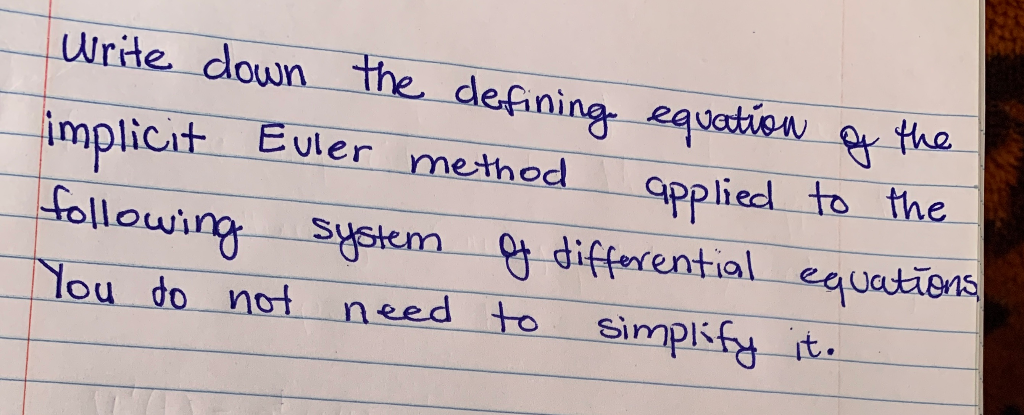 Write down the defining equation of the
implicit Euler method applied to the
following system of differential equations
You do not need to simplify it.